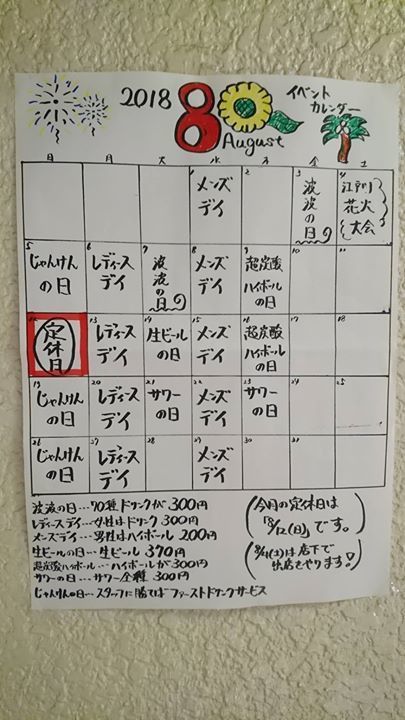 2018 8 August
イベント
カレンダー
日 月 火 水 木 金 土
1 メンズデイ
2
3 波波の日
4 江戸川花火大会
5 じゃんけんの日
6 レディースデイ
7 波波の日
8 メンズデイ
9 超炭酸ハイボールの日
10
11
定休日
13 レディースデイ
14 生ビールの日
15 メンズデイ
16 超炭酸ハイボールの日
17
18
19 じゃんけんの日
20 レディースデイ
21 サワーの日
22 メンズデイ
23 サワーの日
24
25
26 じゃんけんの日
27 レディースデイ
28
29 メンズデイ
30
31
波波の日…70種ドリンクが300円
レディースデイ…女性はドリンク300円
メンズデイ…男性はハイボール200円
生ビールの日…生ビール370円
超炭酸ハイボール…ハイボールが300円
サワーの日…サワー全種300円
じゃんけんの日…スタッフに勝てばファーストドリンクサービス
今月の定休日は
「8/12(日)」です。
8/4(土)は店下で
出店をやります!